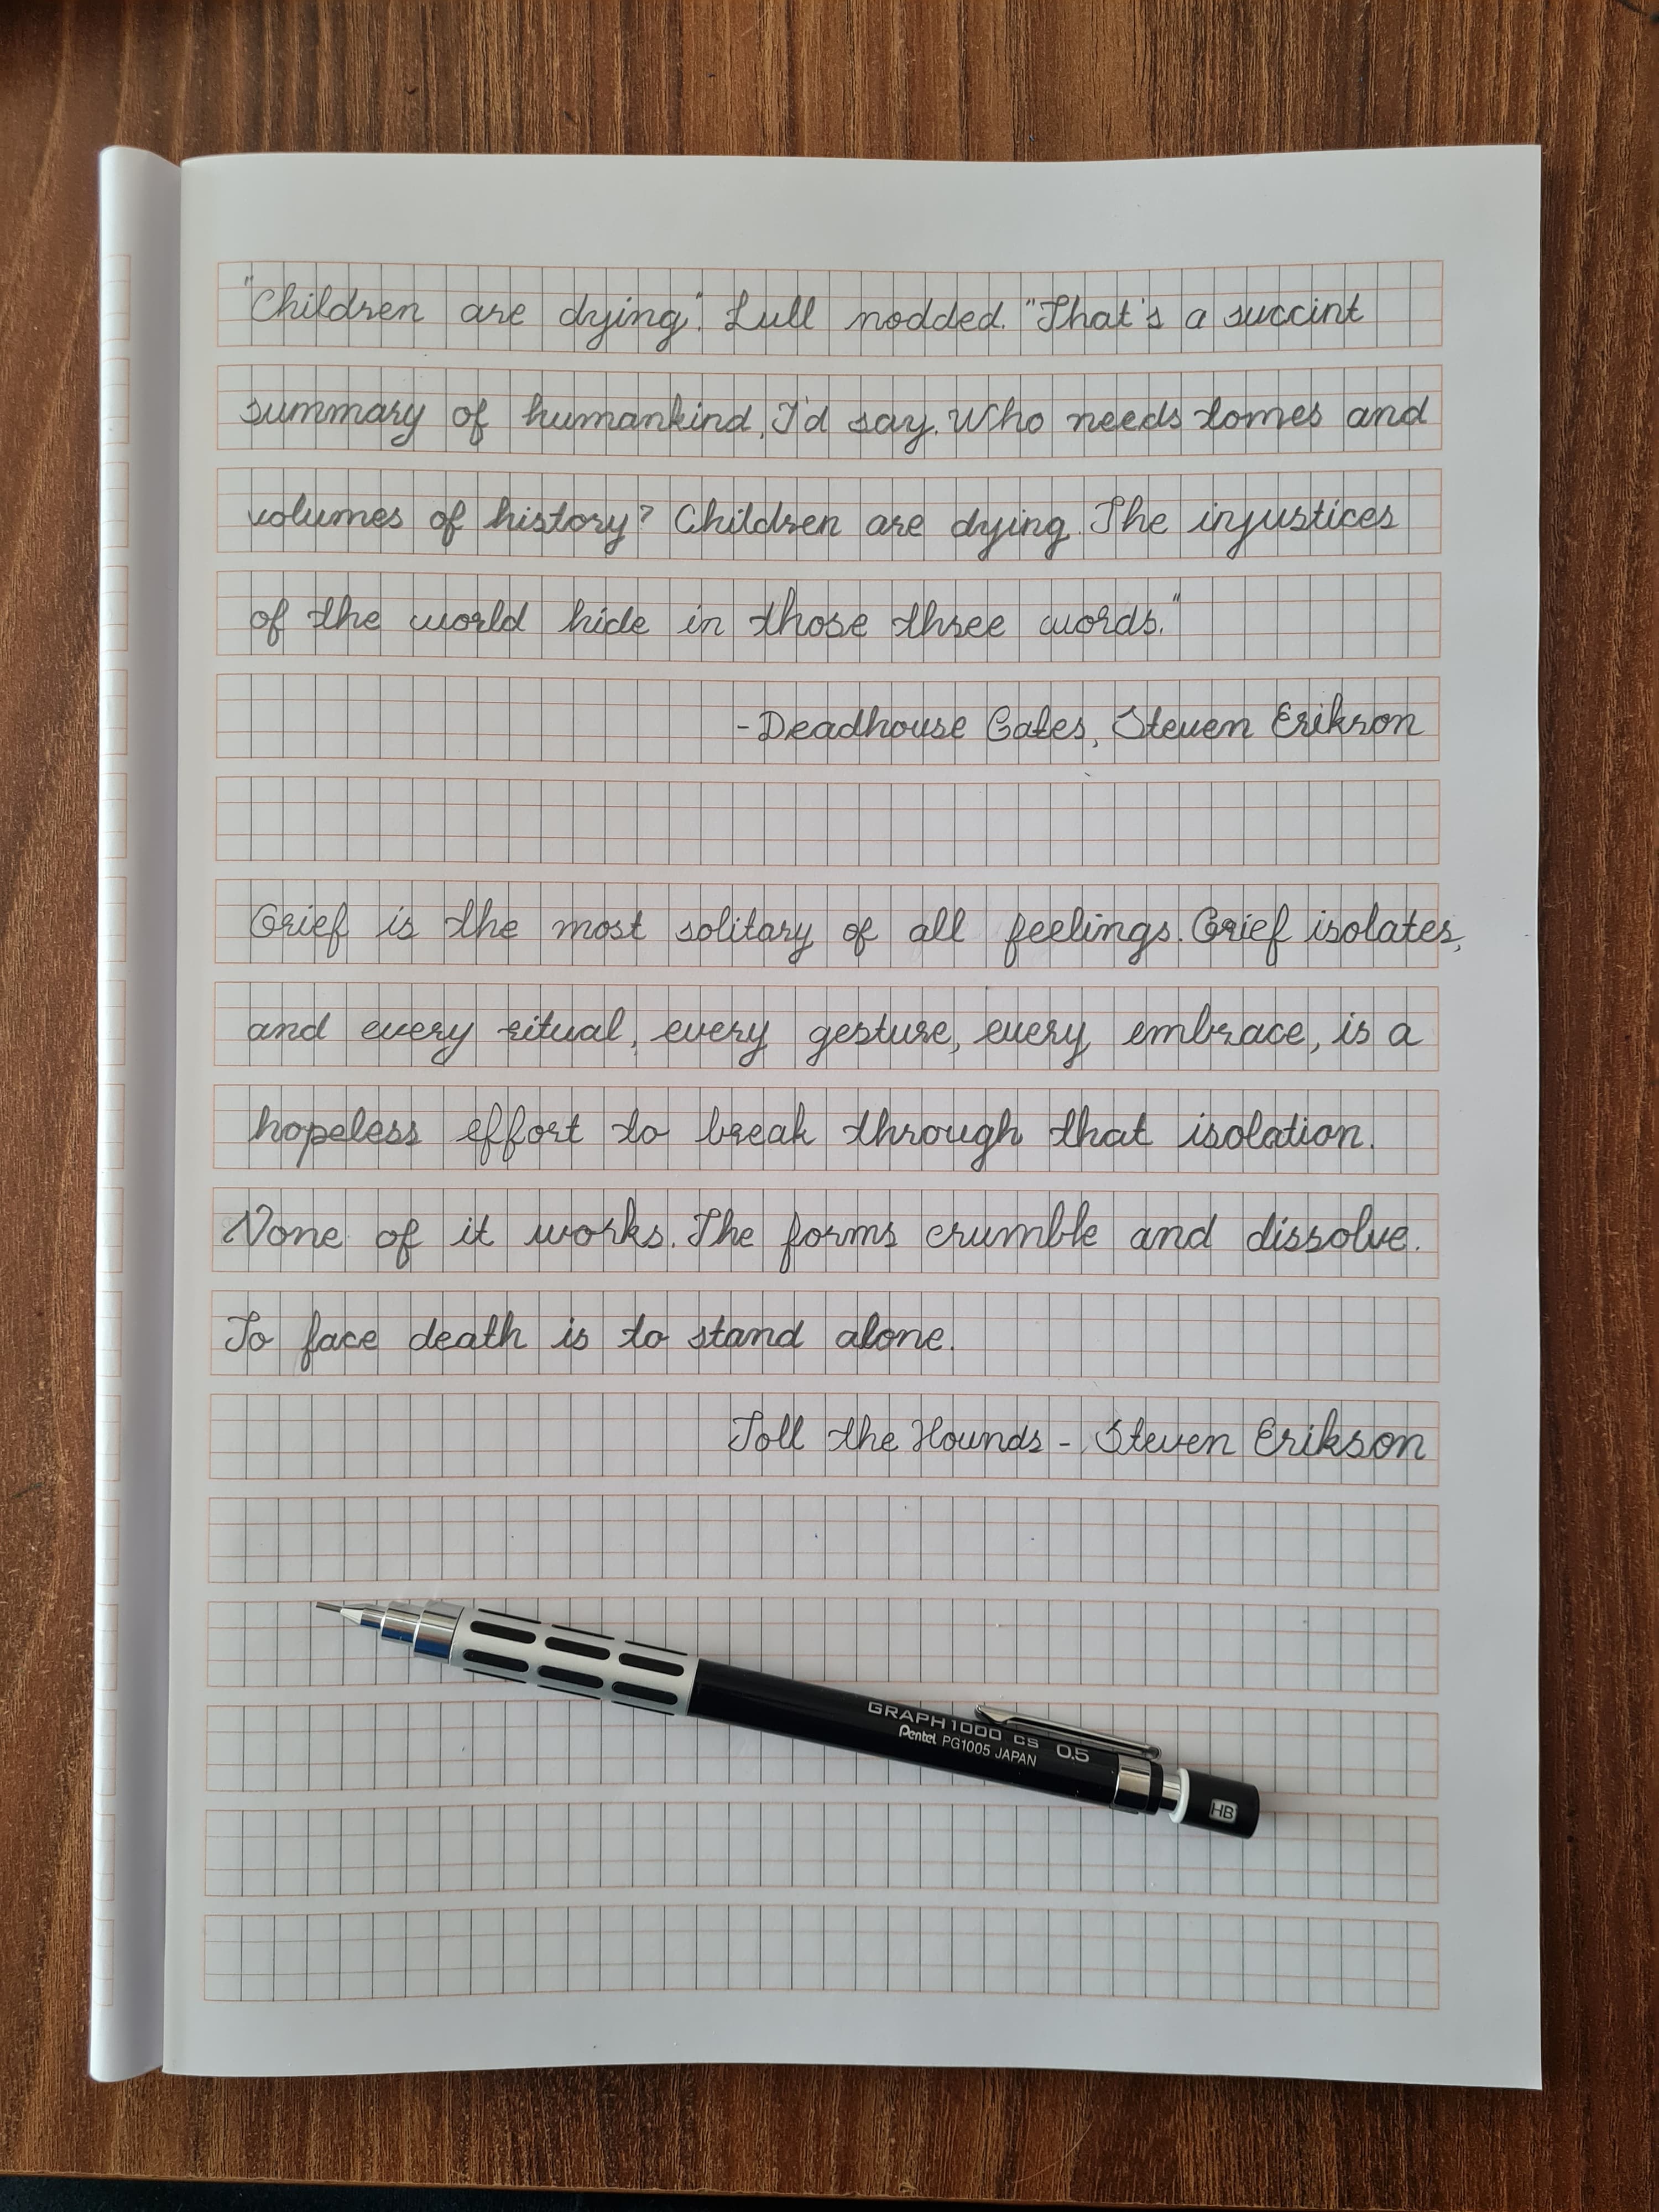 "Children are dying." Lull nodded. "That's a succint
summary of humankind, I'd say. Who needs tomes and
volumes of history? Children are dying. The injustices
of the world hide in those three words."
-Deadhouse Gates, Steven Erikson
Grief is the most solitary of all feelings. Grief isolates,
and every ritual, every gesture, every embrace, is a
hopeless effort to break through that isolation.
None of it works. The forms crumble and dissolve.
To face death is to stand alone.
Toll the Hounds - Steven Erikson
GRAPH1000 CS 0.5
Pentel PG1005 JAPAN
HB